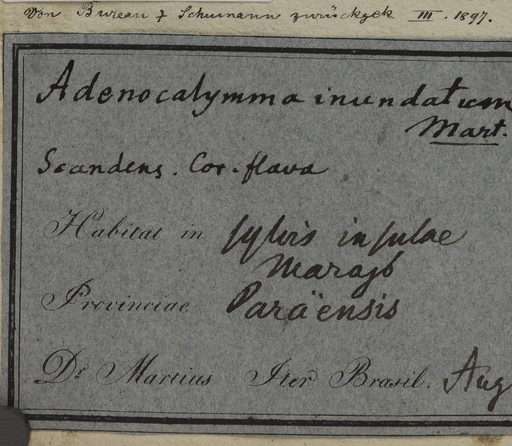 Von Bureau & Schumann zurückgek III. 1897.
Adenocalymma inundatum
Mart.
Scandens. Cor. flava
Habitat in sylvis insulae
Marajó
Provinciae Paraënsis
Dr Martius Iter Brasil. Aug